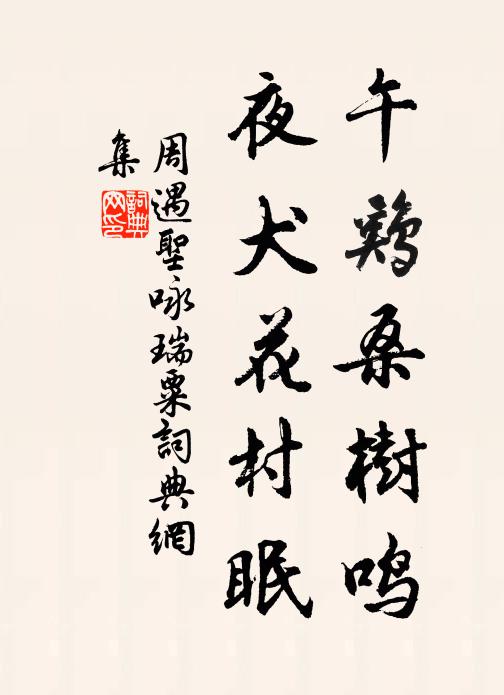 午鷄桑樹鳴
夜犬花村眠
周遇聖咏瑞粟詞典網
集
詞典网印